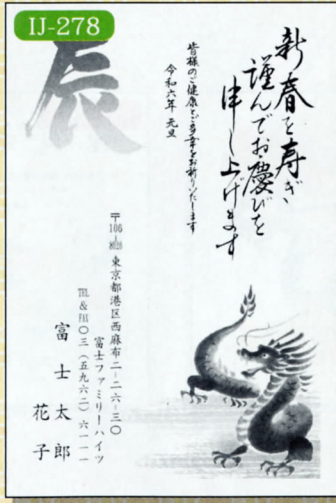 IJ-278
辰
新春を寿ぎ
謹んでお慶びを
申し上げます
皆様のご健康とご多幸をお祈りいたします
令和六年 元旦
〒106-8620 東京都港区西麻布二-二六-三〇
富士ファミリーハイツ
TEL & FAX 〇三(五九六二)六一一一
富士太郎
花子